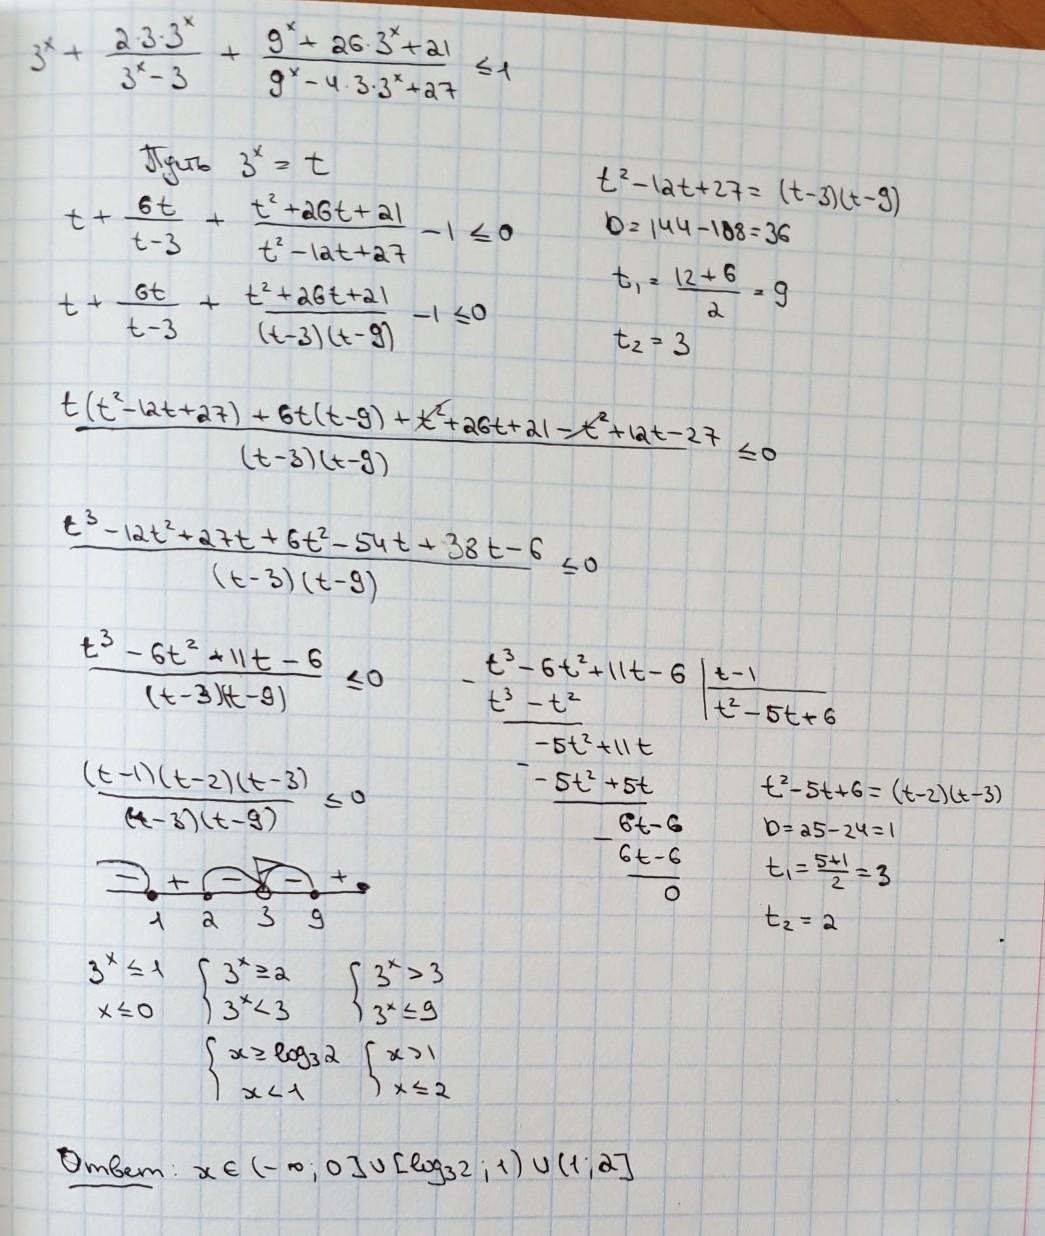 3^x + (2·3·3^x)/(3^x − 3) + (9^x + 26·3^x + 21)/(9^x − 4·3·3^x + 27) ≤ 1
Пусть 3^x = t
t + 6t/(t−3) + (t² + 26t + 21)/(t² − 12t + 27) − 1 ≤ 0
t + 6t/(t−3) + (t² + 26t + 21)/((t−3)(t−9)) − 1 ≤ 0
t² − 12t + 27 = (t−3)(t−9)
D = 144 − 108 = 36
t₁ = (12+6)/2 = 9
t₂ = 3
(t(t² − 12t + 27) + 6t(t−9) + t² + 26t + 21 − t² + 12t − 27)/((t−3)(t−9)) ≤ 0
(t³ − 12t² + 27t + 6t² − 54t + 38t − 6)/((t−3)(t−9)) ≤ 0
(t³ − 6t² + 11t − 6)/((t−3)(t−9)) ≤ 0
((t−1)(t−2)(t−3))/((t−3)(t−9)) ≤ 0
t³ − 6t² + 11t − 6 | t−1
t³ − t² | t² − 5t + 6
−5t² + 11t
−5t² + 5t
6t − 6
6t − 6
0
t² − 5t + 6 = (t−2)(t−3)
D = 25 − 24 = 1
t₁ = (5+1)/2 = 3
t₂ = 2
− + − − +
1 2 3 9
3^x ≤ 1 { 3^x ≥ 2 { 3^x > 3
x ≤ 0 3^x < 3 3^x ≤ 9
{ x ≥ log₃2 { x > 1
x < 1 x ≤ 2
Ответ: x ∈ (−∞; 0] ∪ [log₃2; 1) ∪ (1; 2]